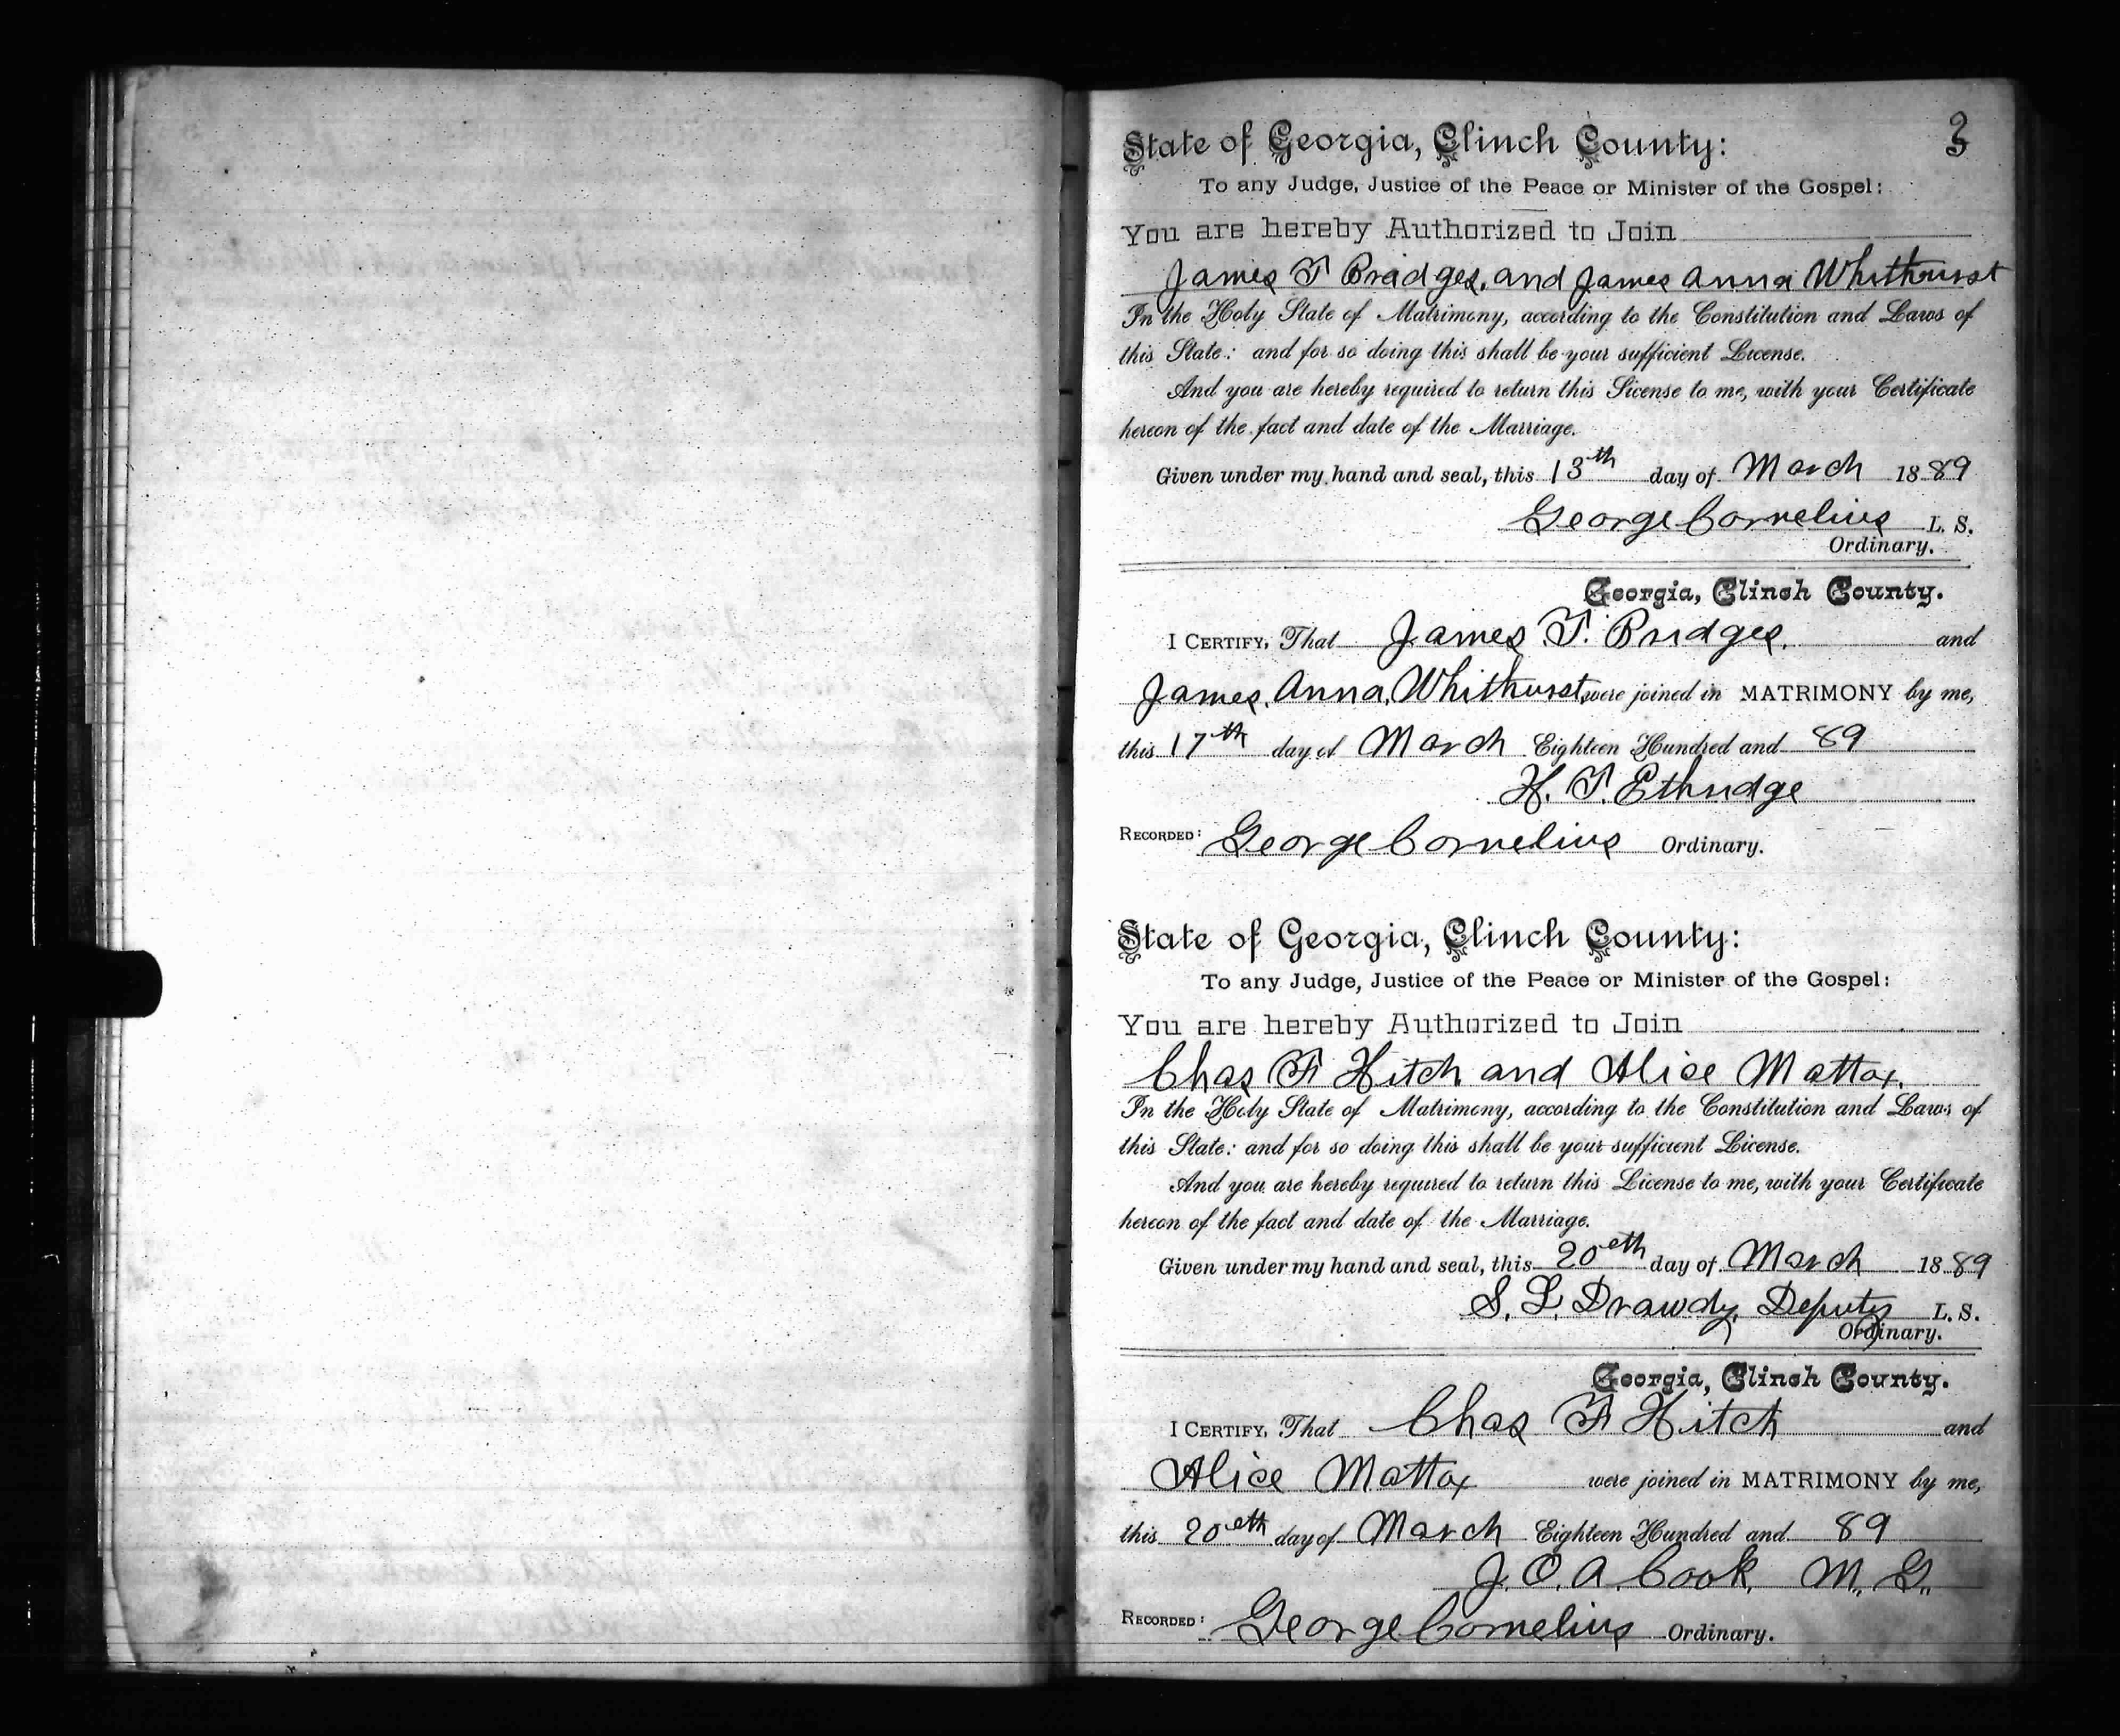 3
State of Georgia, Clinch County:
To any Judge, Justice of the Peace or Minister of the Gospel:
You are hereby Authorized to Join
James T Bridges, and James Anna Whithurst
In the Holy State of Matrimony, according to the Constitution and Laws of
this State: and for so doing this shall be your sufficient License.
And you are hereby required to return this License to me, with your Certificate
hereon of the fact and date of the Marriage.
Given under my hand and seal, this 13th day of March 1889
George Cornelius L. S.
Ordinary.
Georgia, Clinch County.
I Certify, That James T. Bridges. and
James. Anna. Whithurst, were joined in MATRIMONY by me,
this 17th day of March Eighteen Hundred and 89
H. T. Ethridge
Recorded: George Cornelius Ordinary.
State of Georgia, Clinch County:
To any Judge, Justice of the Peace or Minister of the Gospel:
You are hereby Authorized to Join
Chas F Hitch and Alice Mattox.
In the Holy State of Matrimony, according to the Constitution and Laws of
this State: and for so doing this shall be your sufficient License.
And you are hereby required to return this License to me, with your Certificate
hereon of the fact and date of the Marriage.
Given under my hand and seal, this 20eth day of March 1889
S. L. Drawdy, Deputy L. S.
Ordinary.
Georgia, Clinch County.
I Certify, That Chas F Hitch and
Alice Mattox were joined in MATRIMONY by me,
this 20eth day of March Eighteen Hundred and 89
J. O. A. Cook. M. G.
Recorded: George Cornelius Ordinary.